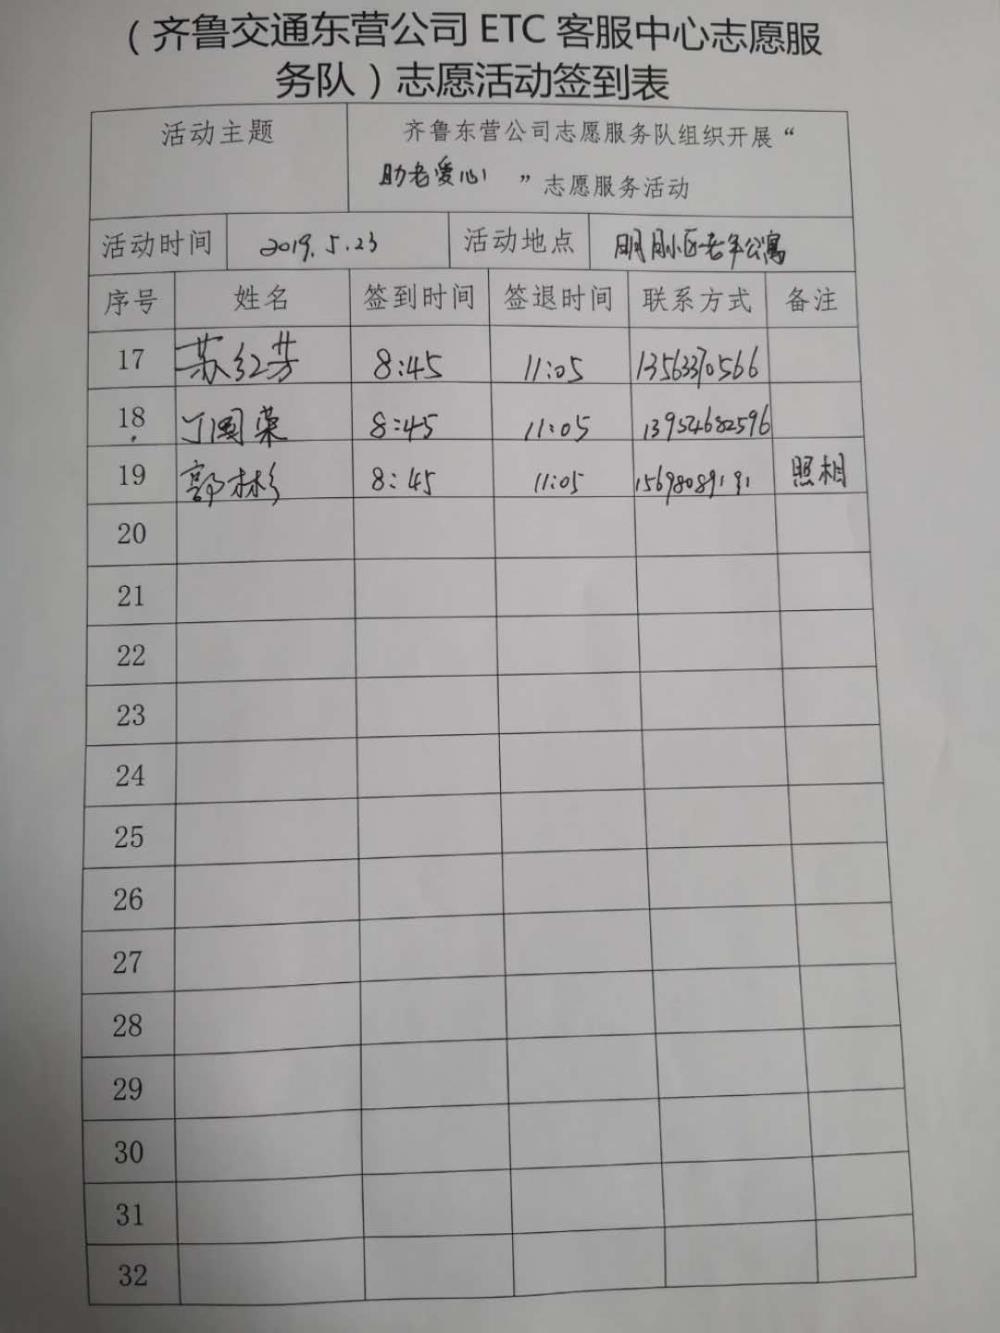 （齐鲁交通东营公司 ETC 客服中心志愿服
务队）志愿活动签到表
活动主题 齐鲁东营公司志愿服务队组织开展“
助老爱心 ”志愿服务活动
活动时间 2019.5.23 活动地点 明月小区老年公寓
序号 姓名 签到时间 签退时间 联系方式 备注
17 苏红芳 8:45 11:05 13563370566
18 丁国荣 8:45 11:05 13954682596
19 郭彬彬 8:45 11:05 15698089191 照相
20
21
22
23
24
25
26
27
28
29
30
31
32